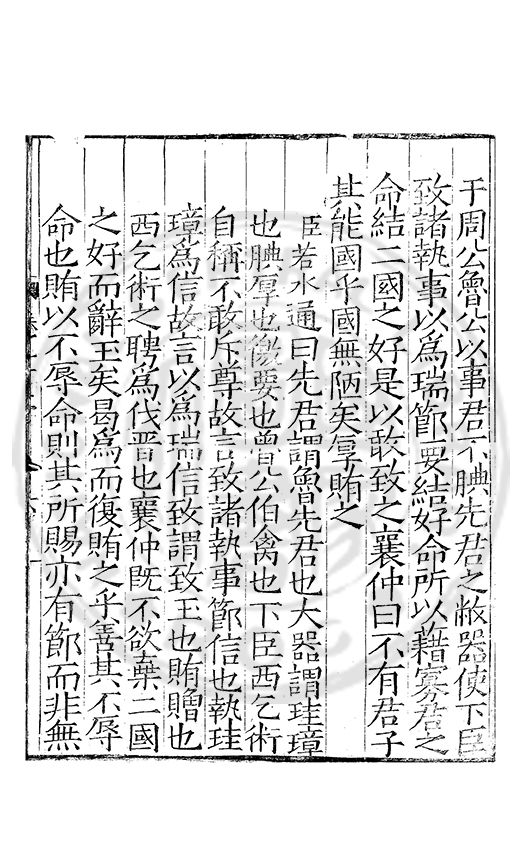 于周公魯公以事君不腆先君之敝器使下臣
致諸執事以為瑞節要結好命所以藉寡君之
命結二國之好是以敢致之襄仲曰不有君子
其能國乎國無陋矣厚賄之
臣若水通曰先君謂魯先君也大器謂珪璋
也腆厚也徼要也魯公伯禽也下臣西乞術
自稱不敢斥尊故言致諸執事節信也執珪
璋為信故言以為瑞信致謂致玉也賄贈也
西乞術之聘為伐晉也襄仲既不欲棄二國
之好而辭玉矣曷為而復賄之乎善其不辱
命也賄以不辱命則其所賜亦有節而非無